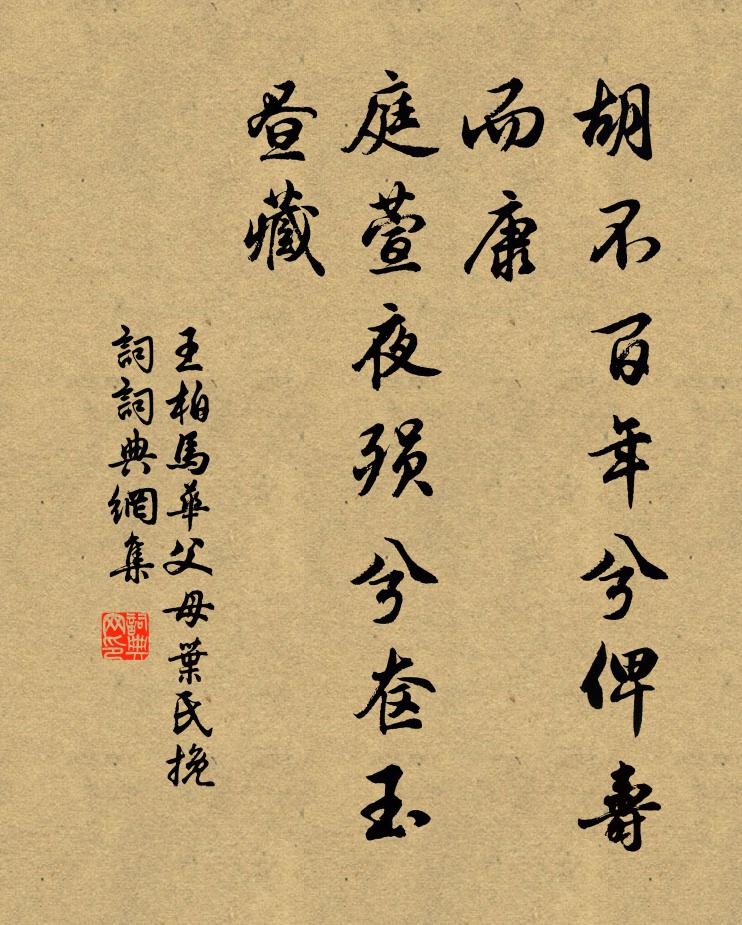 胡不百年兮俾壽
而康
庭萱夜殞兮奁玉
昼藏
王柏馬華父母葉氏挽
詞詞典網集
詞典
网印